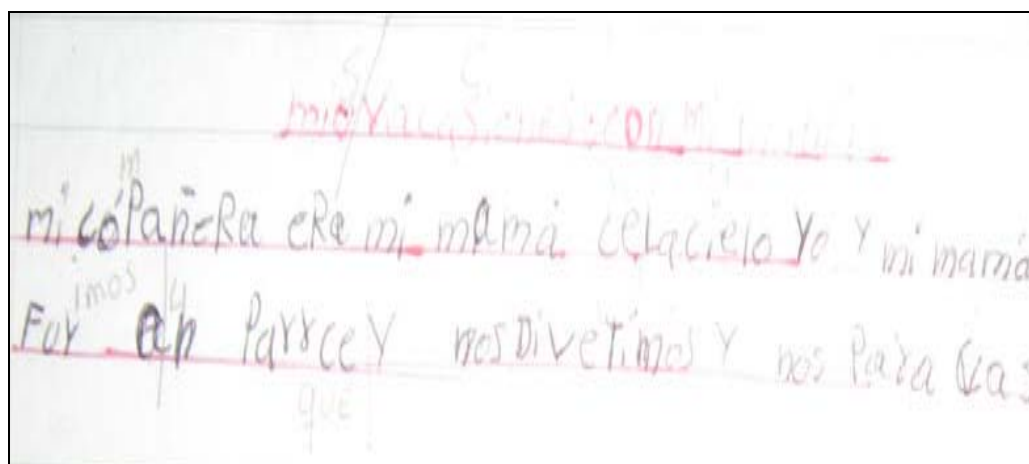 mis Vacasiones con mi
m
mi cópañeRa eRa mi mamá celacielo Yo Y mi mamá
imos u
Fur an ParrceY nos DiveTimos Y nos Para
que